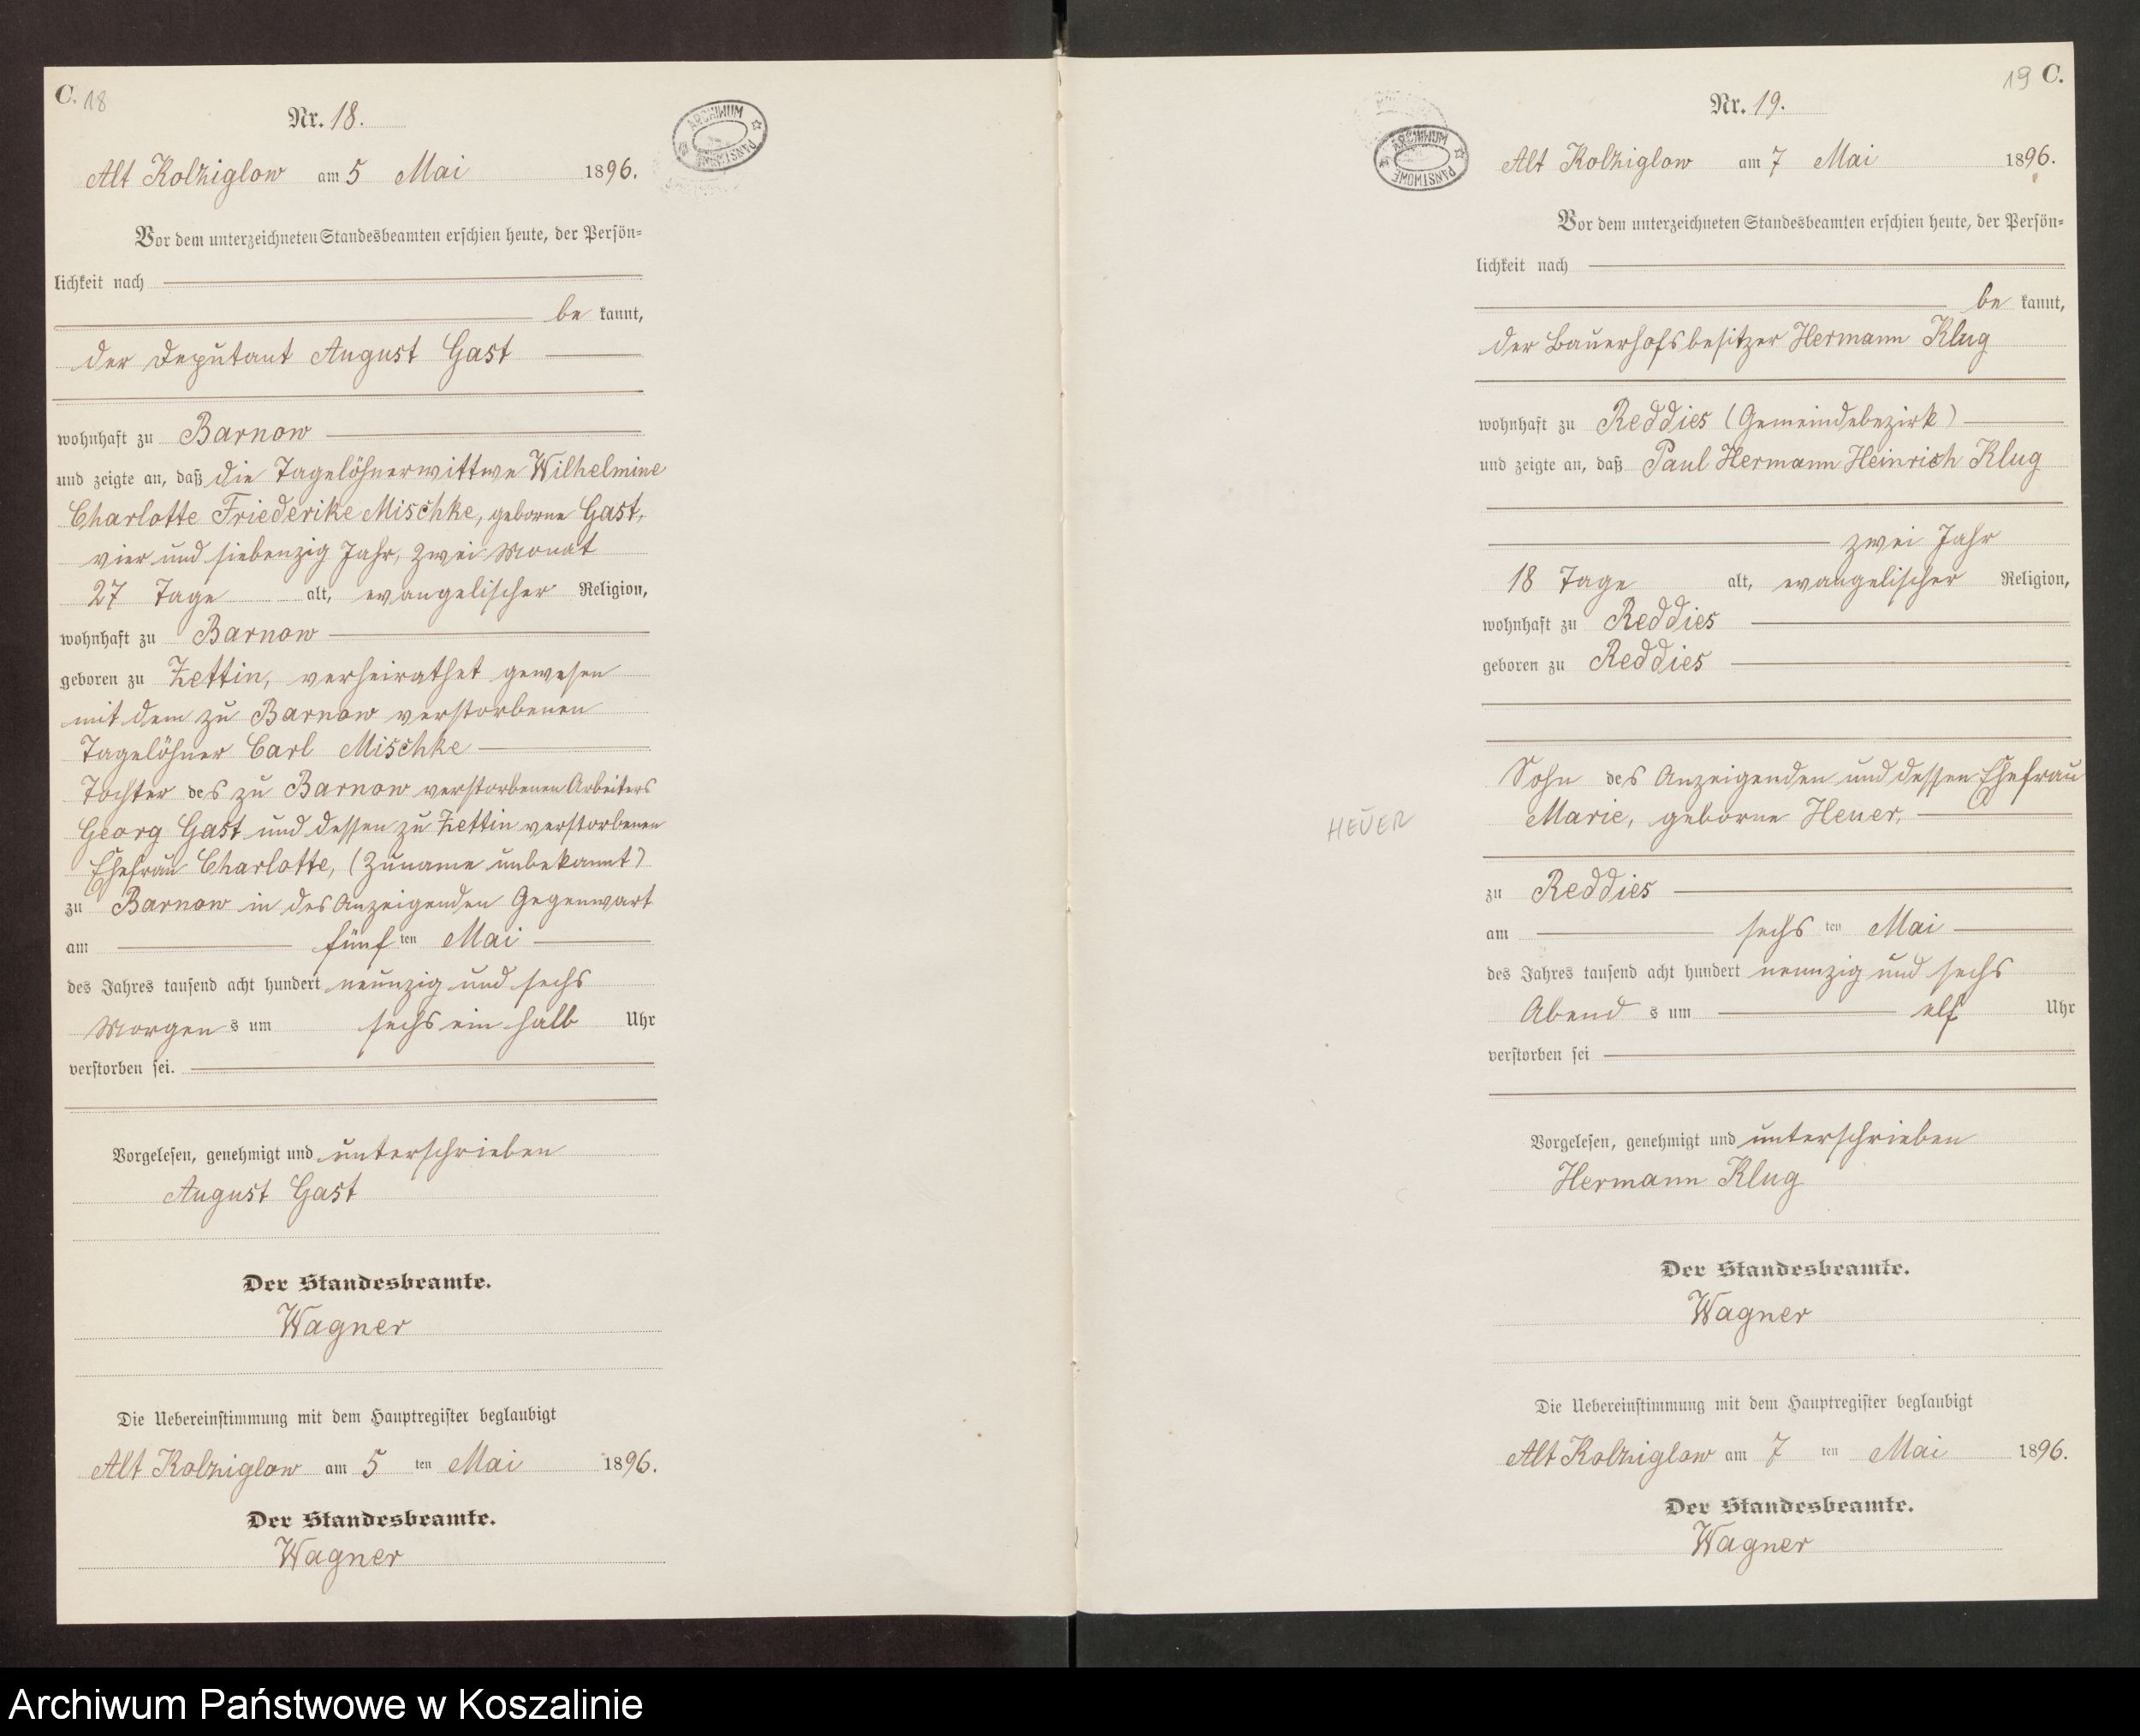 C. 18
Nr. 18.
ARCHIWUM PAŃSTWOWE
Alt Kolziglow am 5 Mai 1896.
Vor dem unterzeichneten Standesbeamten erschien heute, der Persön=
lichkeit nach
be kannt,
der Deputant August Gast
wohnhaft zu Barnow
und zeigte an, daß die Tagelöhnerwittwe Wilhelmine
Charlotte Friederike Mischke, geborne Gast,
vier und siebenzig Jahr, zwei Monat
27 Tage alt, evangelischer Religion,
wohnhaft zu Barnow
geboren zu Zettin, verheirathet gewesen
mit dem zu Barnow verstorbenen
Tagelöhner Carl Mischke
Tochter des zu Barnow verstorbenen Arbeiters
Georg Gast und dessen zu Zettin verstorbenen
Ehefrau Charlotte, (Zuname unbekannt)
zu Barnow in des Anzeigenden Gegenwart
am fünf ten Mai
des Jahres tausend acht hundert neunzig und sechs
Morgen s um sechs ein halb Uhr
verstorben sei.
Vorgelesen, genehmigt und unterschrieben
August Gast
Der Standesbeamte.
Wagner
Die Uebereinstimmung mit dem Hauptregister beglaubigt
Alt Kolziglow am 5 ten Mai 1896.
Der Standesbeamte.
Wagner
19 C.
Nr. 19.
ARCHIWUM PAŃSTWOWE
Alt Kolziglow am 7 Mai 1896.
Vor dem unterzeichneten Standesbeamten erschien heute, der Persön=
lichkeit nach
be kannt,
der Bauerhofsbesitzer Hermann Klug
wohnhaft zu Reddies (Gemeindebezirk)
und zeigte an, daß Paul Hermann Heinrich Klug
zwei Jahr
18 Tage alt, evangelischer Religion,
wohnhaft zu Reddies
geboren zu Reddies
Sohn des Anzeigenden und dessen Ehefrau
Marie, geborne Heuer,
HEUER
zu Reddies
am sechs ten Mai
des Jahres tausend acht hundert neunzig und sechs
Abend s um elf Uhr
verstorben sei
Vorgelesen, genehmigt und unterschrieben
Hermann Klug
Der Standesbeamte.
Wagner
Die Uebereinstimmung mit dem Hauptregister beglaubigt
Alt Kolziglow am 7 ten Mai 1896.
Der Standesbeamte.
Wagner
Archiwum Państwowe w Koszalinie